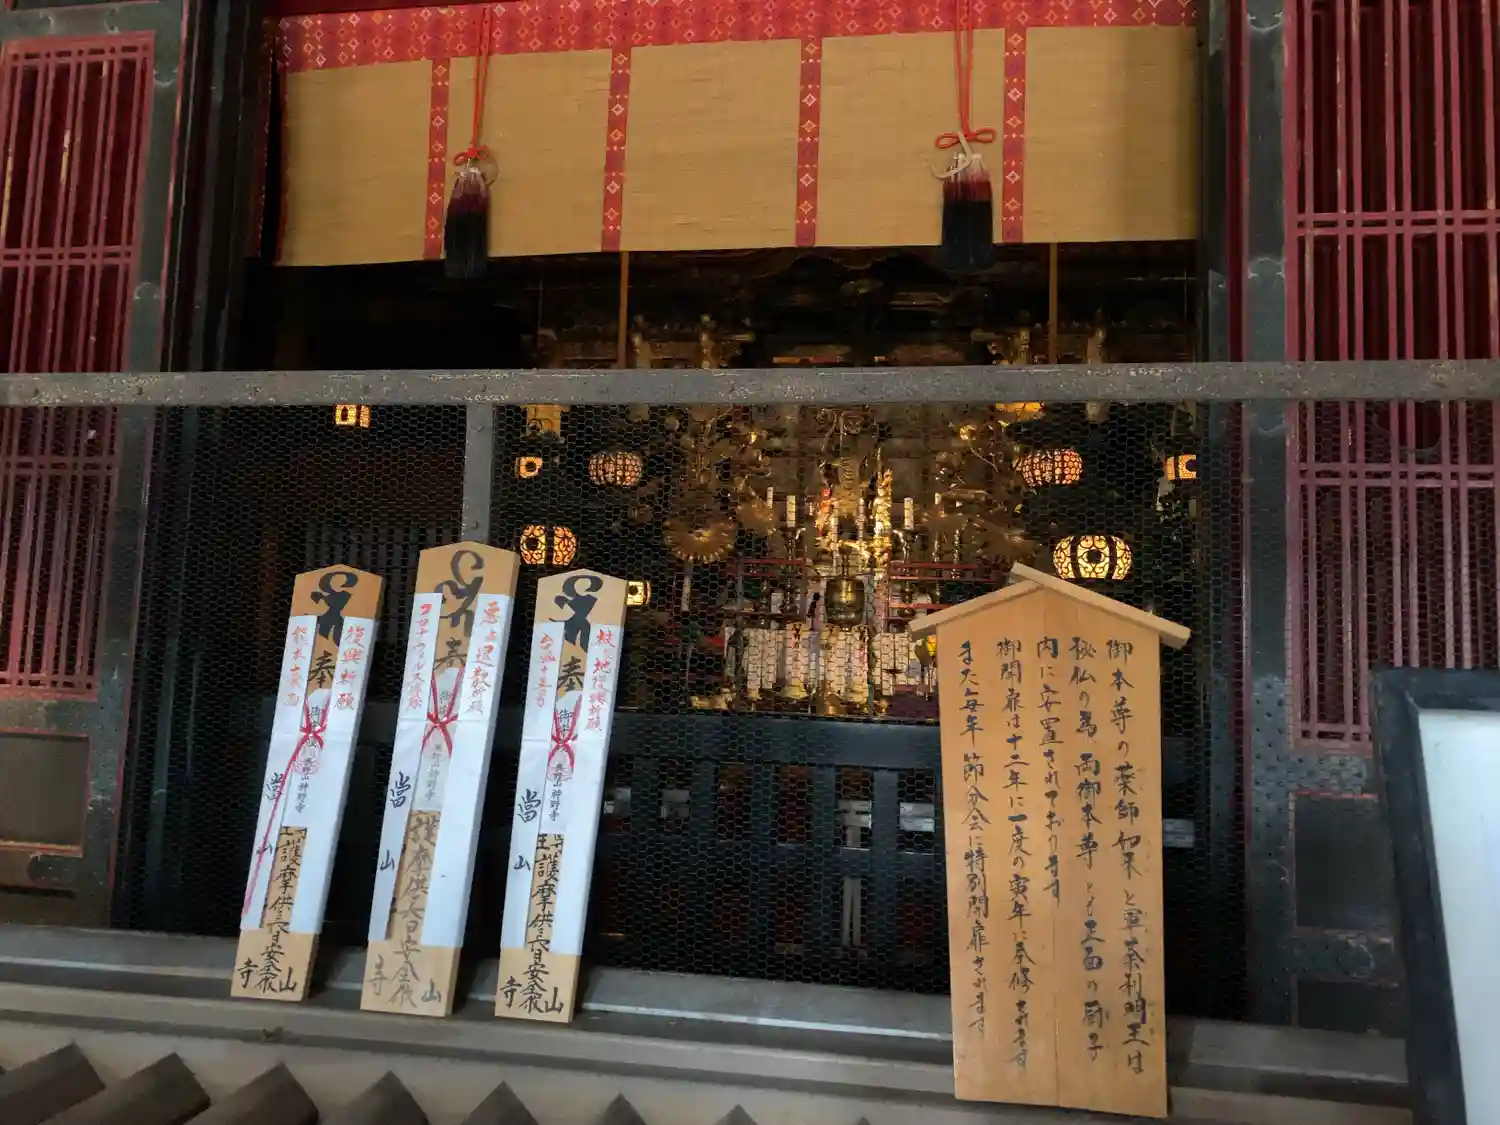 御本尊の薬師如来と軍荼利明王は
秘仏の為、両御本尊とも正面の厨子
内に安置されております
御開扉は十二年に一度の寅年に奉修されます
また毎年節分会に特別開扉されます
復興祈願
奉
當
山
護摩供長日安全祈
山
寺
悪疫退散祈願
コロナウィルス
奉
當
山
護摩供長日安全祈
山
寺
被災地復興祈願
奉
當
山
護摩供長日安全祈
山
寺